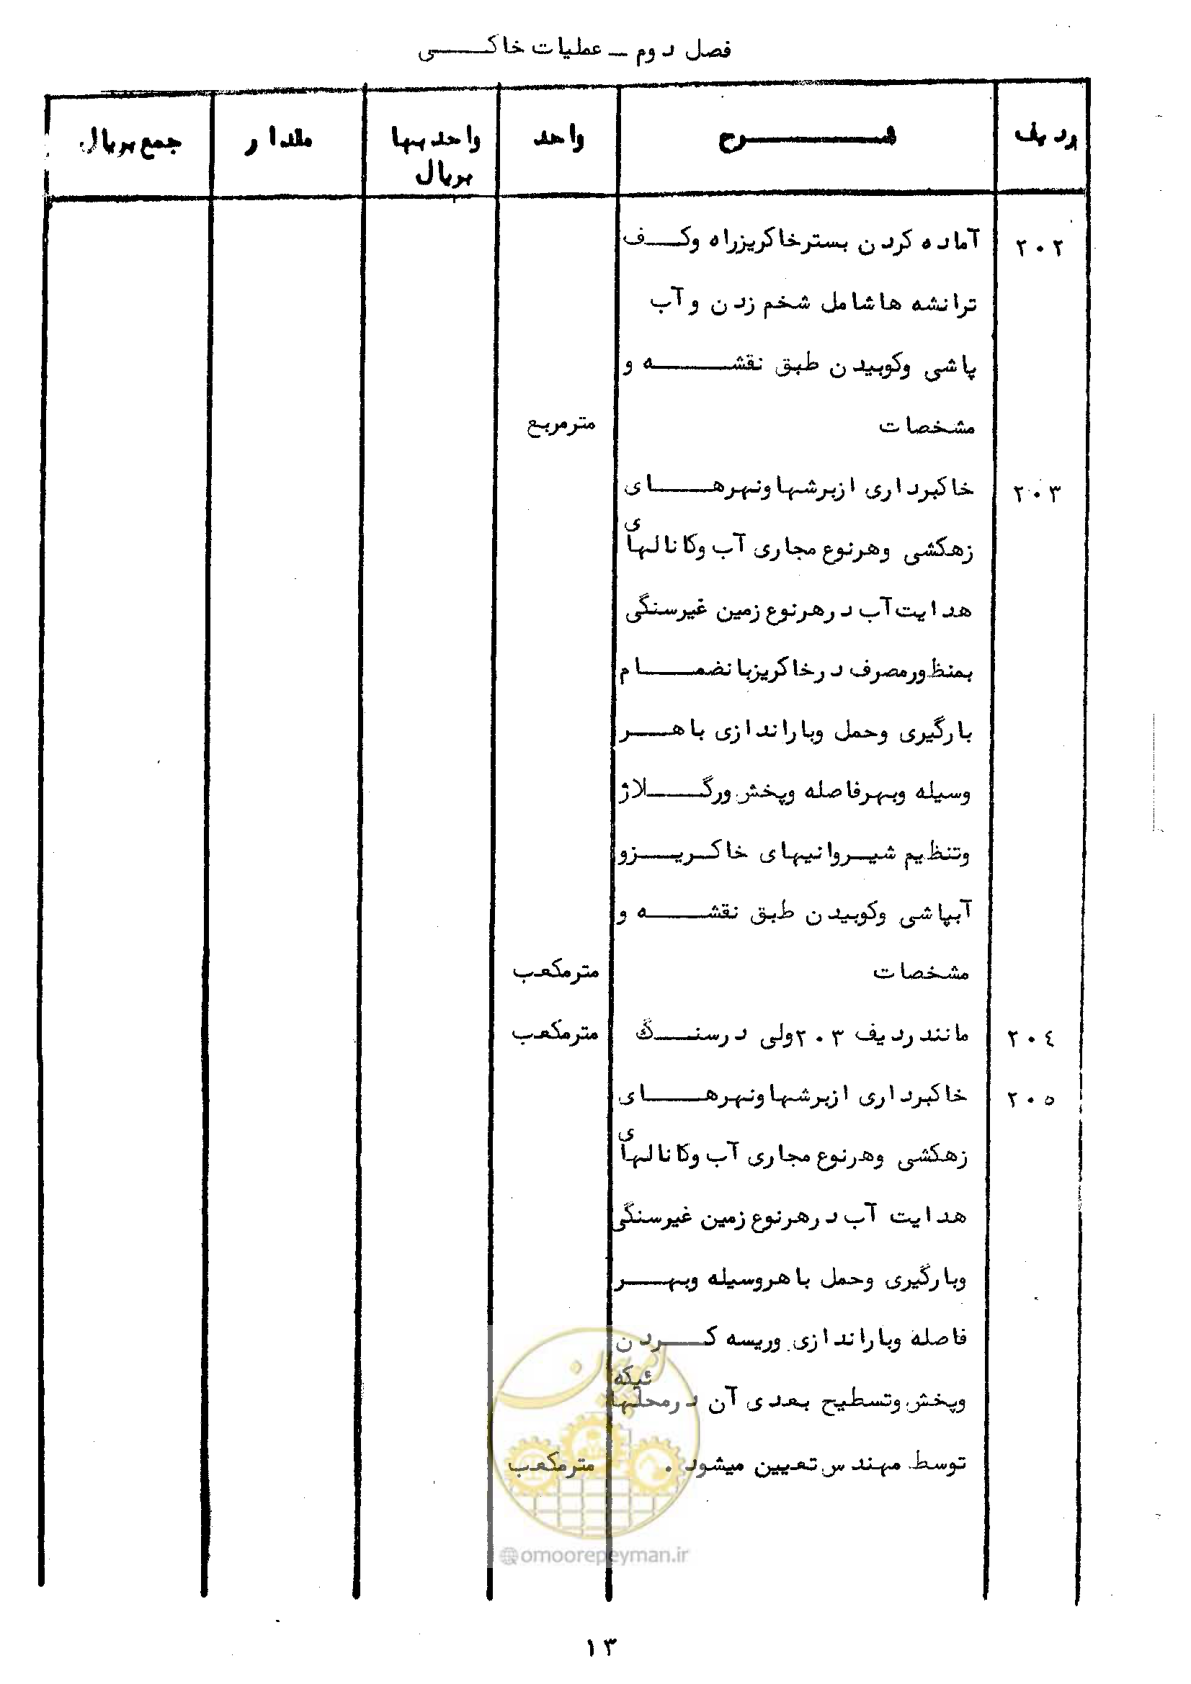 فصل دوم ــ عملیات خاکــــی
ردیف شــــــــرح واحد واحد بها مقدار جمع بریال
بریال
۲۰۲ آماده کردن بسترخاکریزراه وکــف
ترانشه هاشامل شخم زدن و آب
پاشی وکوبیدن طبق نقشـــــه و
مشخصات مترمربع
۲۰۳ خاکبرداری ازبرشهاونهرهــــای
زهکشی وهرنوع مجاری آب وکانالهای
هدایت آب درهرنوع زمین غیرسنگی
بمنظورمصرف درخاکریزبانضمـــام
بارگیری وحمل وباراندازی باهــر
وسیله وبهرفاصله وپخش ورگـــلاژ
وتنظیم شیروانیهای خاکریـــزو
آبپاشی وکوبیدن طبق نقشـــه و
مشخصات مترمکعب
۲۰٤ مانندردیف ۲۰۳ولی درسنــگ مترمکعب
۲۰۵ خاکبرداری ازبرشهاونهرهــــای
زهکشی وهرنوع مجاری آب وکانالهای
هدایت آب درهرنوع زمین غیرسنگی
وبارگیری وحمل باهروسیله وبهـــر
فاصله وباراندازی وریسه کـــردن
وپخش وتسطیح بعدی آن درمحلهائیکه
توسط مهندس تعیین میشود . مترمکعب
امور پیمان
@omoorepeyman.ir
۱۳